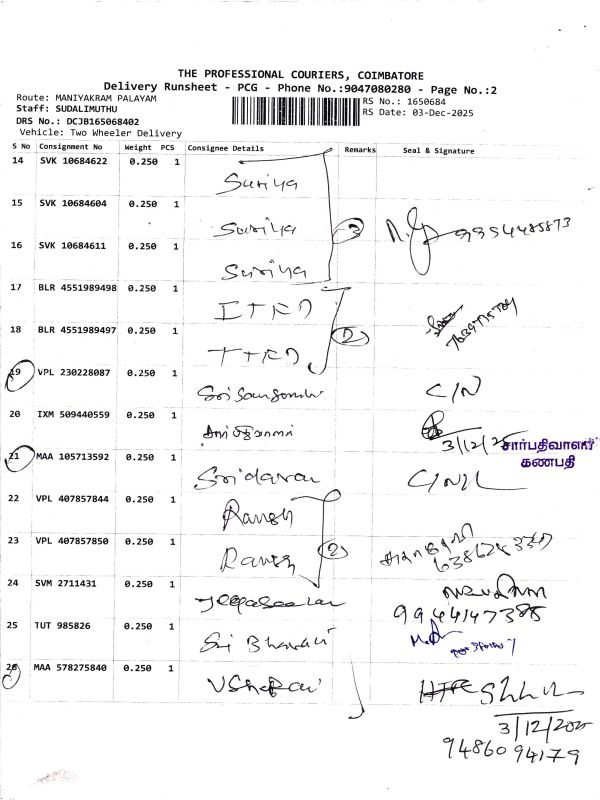 THE PROFESSIONAL COURIERS, COIMBATORE
Delivery Runsheet - PCG - Phone No.:9047080280 - Page No.:2
Route: MANIYAKRAM PALAYAM
Staff: SUDALIMUTHU
DRS No.: DCJB165068402
Vehicle: Two Wheeler Delivery
RS No.: 1650684
RS Date: 03-Dec-2025
S No Consignment No Weight PCS Consignee Details Remarks Seal & Signature
14 SVK 10684622 0.250 1 Suriya
15 SVK 10684604 0.250 1 Suriya 3 9994485873
16 SVK 10684611 0.250 1 Suriya
17 BLR 4551989498 0.250 1
18 BLR 4551989497 0.250 1 2
19 VPL 230228087 0.250 1 C/N
20 IXM 509440559 0.250 1 3/12/25
சார்பதிவாளர்
கணபதி
21 MAA 105713592 0.250 1 Sridaran
22 VPL 407857844 0.250 1 Ramesh
23 VPL 407857850 0.250 1 Ramesh 2
24 SVM 2711431 0.250 1 Jeyaseelan
25 TUT 985826 0.250 1 Sri Bharavi
26 MAA 578275840 0.250 1
3/12/2025
94860 94179